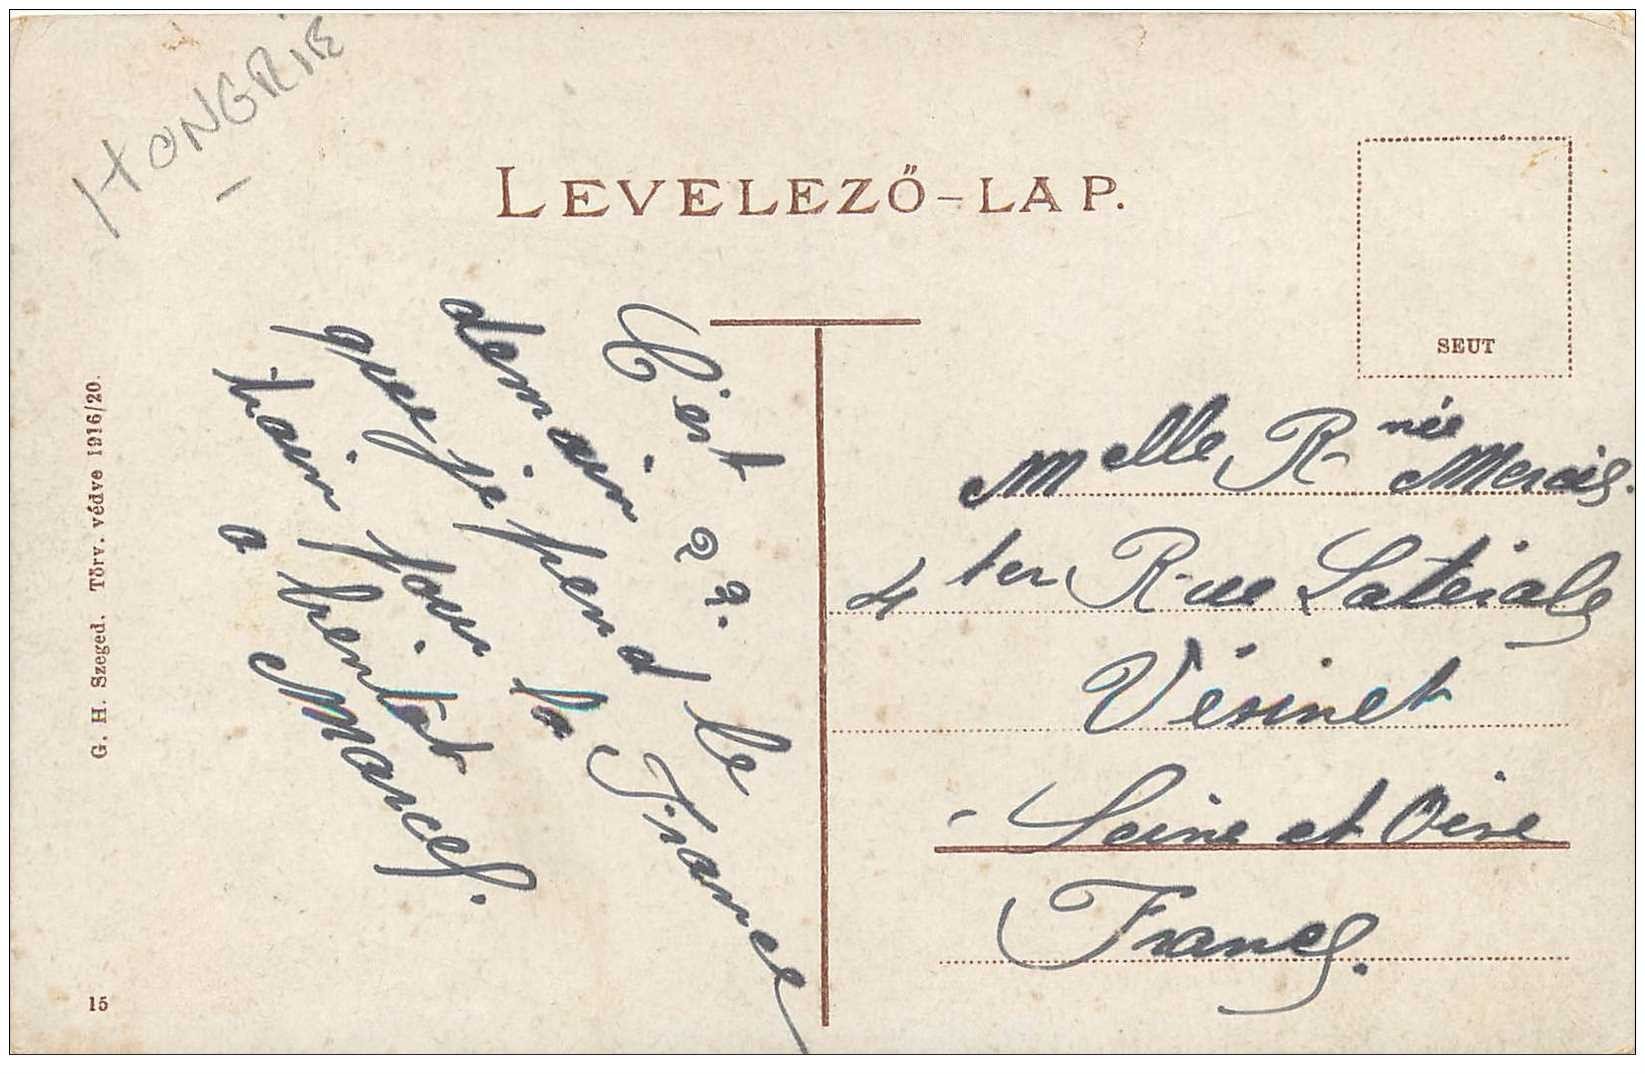 HONGRIE
LEVELEZŐ-LAP.
SEUT
C'est 22.
demain
que je prend le
train pour la France
a bientot
Marcel.
Melle Renée
4 ter Rue Laterale
Vésinet
Seine et Oise
France.
G. H. Szeged. Törv. védve 1916/20.
15